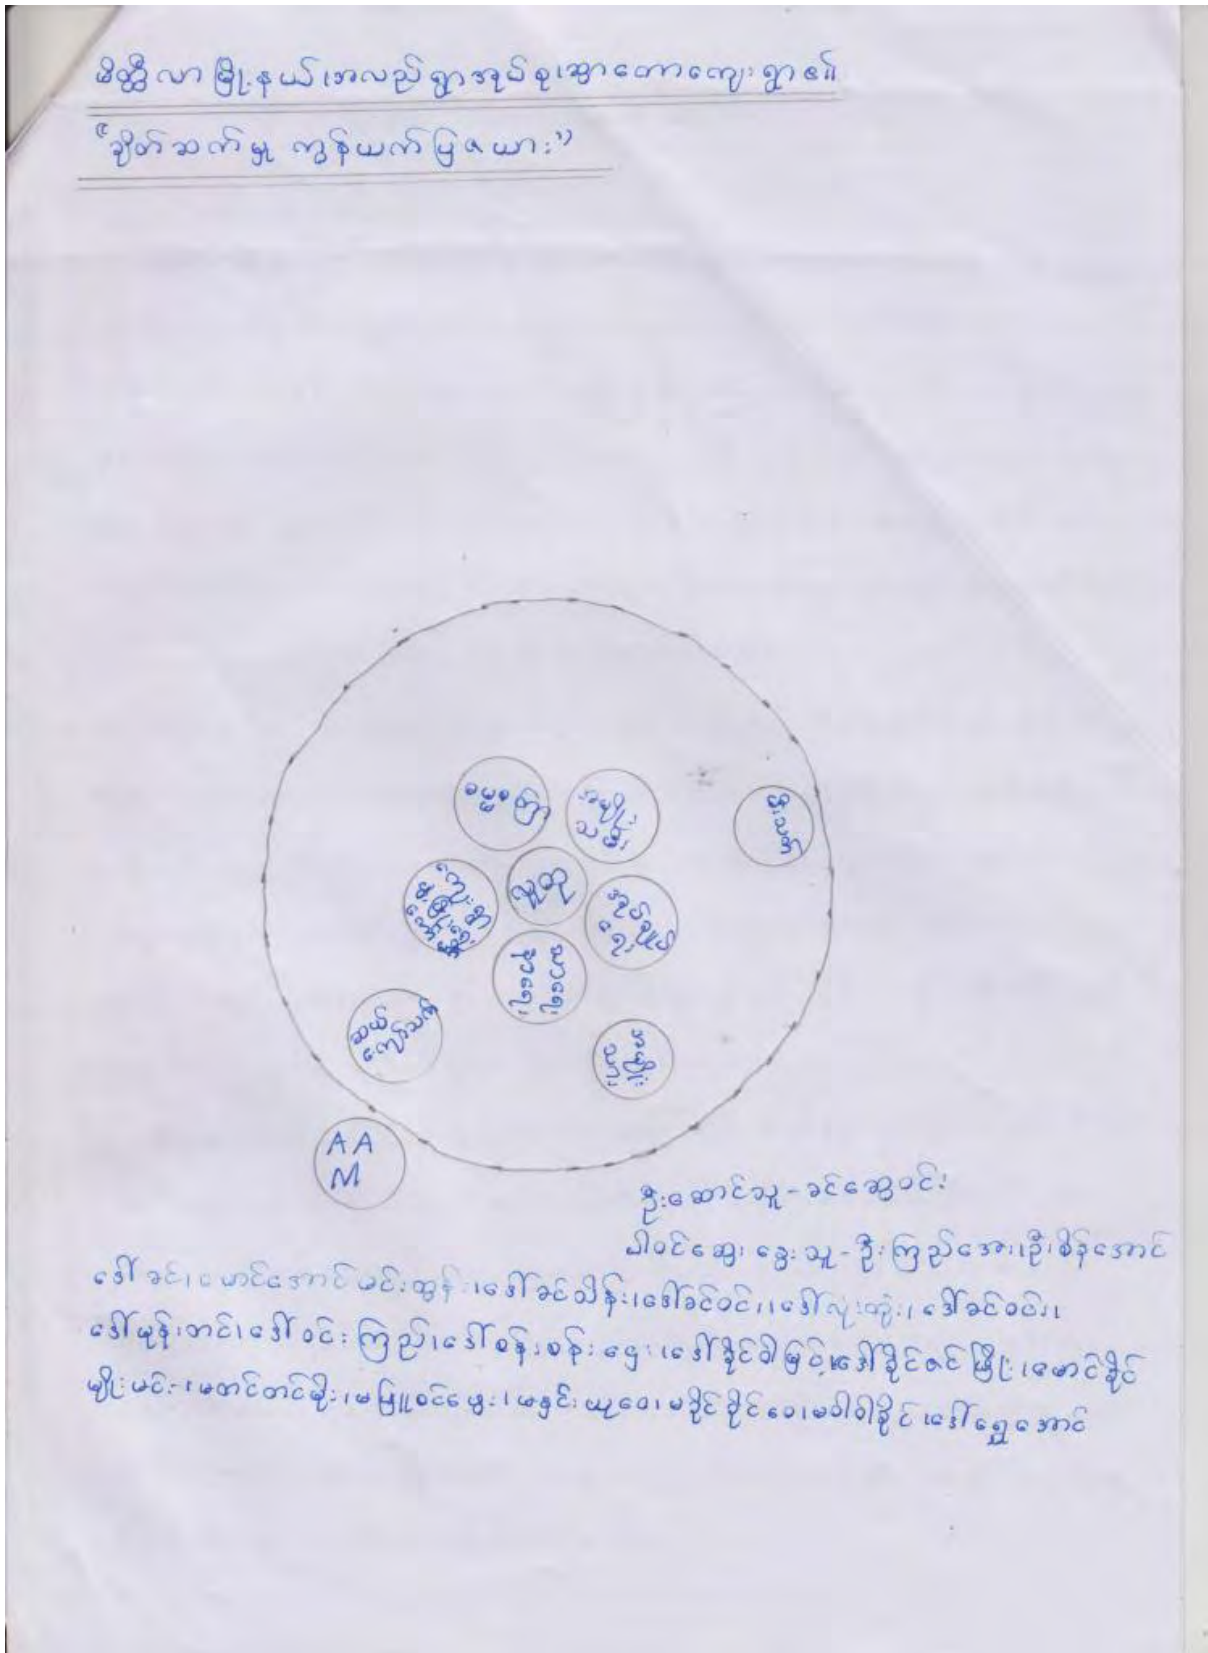 မိတ္ထီလာမြို့နယ်၊အလယ်ရွာအုပ်စု၊ဆွာတောကျေးရွာ၏
"ချိတ်ဆက်မှု ကွန်ယက်ပြဇယား"
ဓမ္မစကြာ
အမျိုး
သမီး
မီးသတ်
လူထု
ကျေးရွာ
ဖွံ့ဖြိုးရေး
အုပ်ချုပ်
ရေး
ဆယ်
ကျော်သက်
AA
M
ဦးဆောင်သူ - ခင်ဆွေဝင်း
ပါဝင်ဆွေးနွေးသူ - ဦးကြည်အေး၊ဦးစိန်အောင်
ဒေါ်ခင်၊မောင်အောင်မင်းထွန်း၊ဒေါ်ခင်သိန်း၊ဒေါ်ခင်ဝင်း၊ဒေါ်လုံးတုံး၊ဒေါ်ခင်ဝင်း၊
ဒေါ်မုန်းတင်၊ဒေါ်ဝင်းကြည်၊ဒေါ်စန်းစန်းဌေး၊ဒေါ်ခိုင်ဝါမြင့်၊ဒေါ်ခိုင်ဇင်ဖြိုး၊မောင်ခိုင်
မျိုးမင်း၊မတင်တင်မိုး၊မဖြူဝင်ဖွေး၊မနှင်းယုဝေ၊မခိုင်ခိုင်ဝေ၊မဝါဝါခိုင်၊ဒေါ်ရွှေအောင်